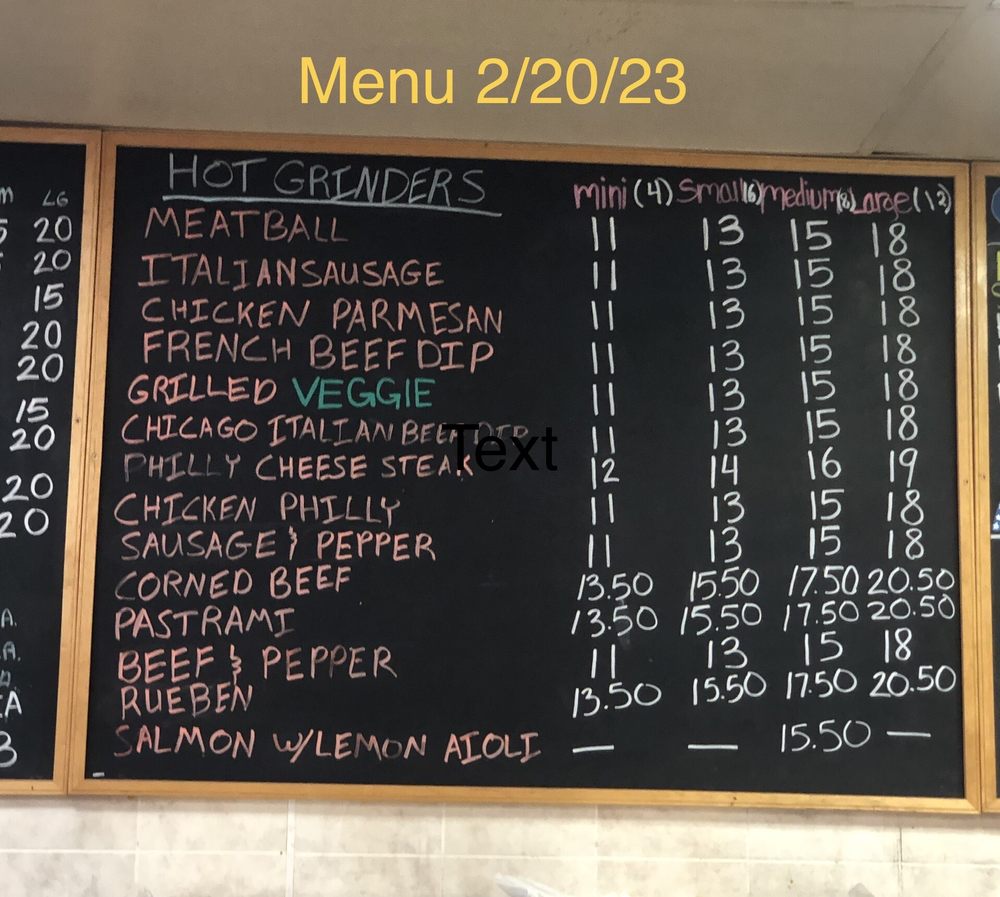 Menu 2/20/23
HOT GRINDERS mini (4) Small (6) medium (8) Large (12)
MEATBALL 11 13 15 18
ITALIAN SAUSAGE 11 13 15 18
CHICKEN PARMESAN 11 13 15 18
FRENCH BEEF DIP 11 13 15 18
GRILLED VEGGIE 11 13 15 18
CHICAGO ITALIAN BEEF DIP 11 13 15 18
Text
PHILLY CHEESE STEAK 12 14 16 19
CHICKEN PHILLY 11 13 15 18
SAUSAGE & PEPPER 11 13 15 18
CORNED BEEF 13.50 15.50 17.50 20.50
PASTRAMI 13.50 15.50 17.50 20.50
BEEF & PEPPER 11 13 15 18
RUEBEN 13.50 15.50 17.50 20.50
SALMON W/LEMON AIOLI — — 15.50 —
LG
20
20
15
20
20
15
20
20
20